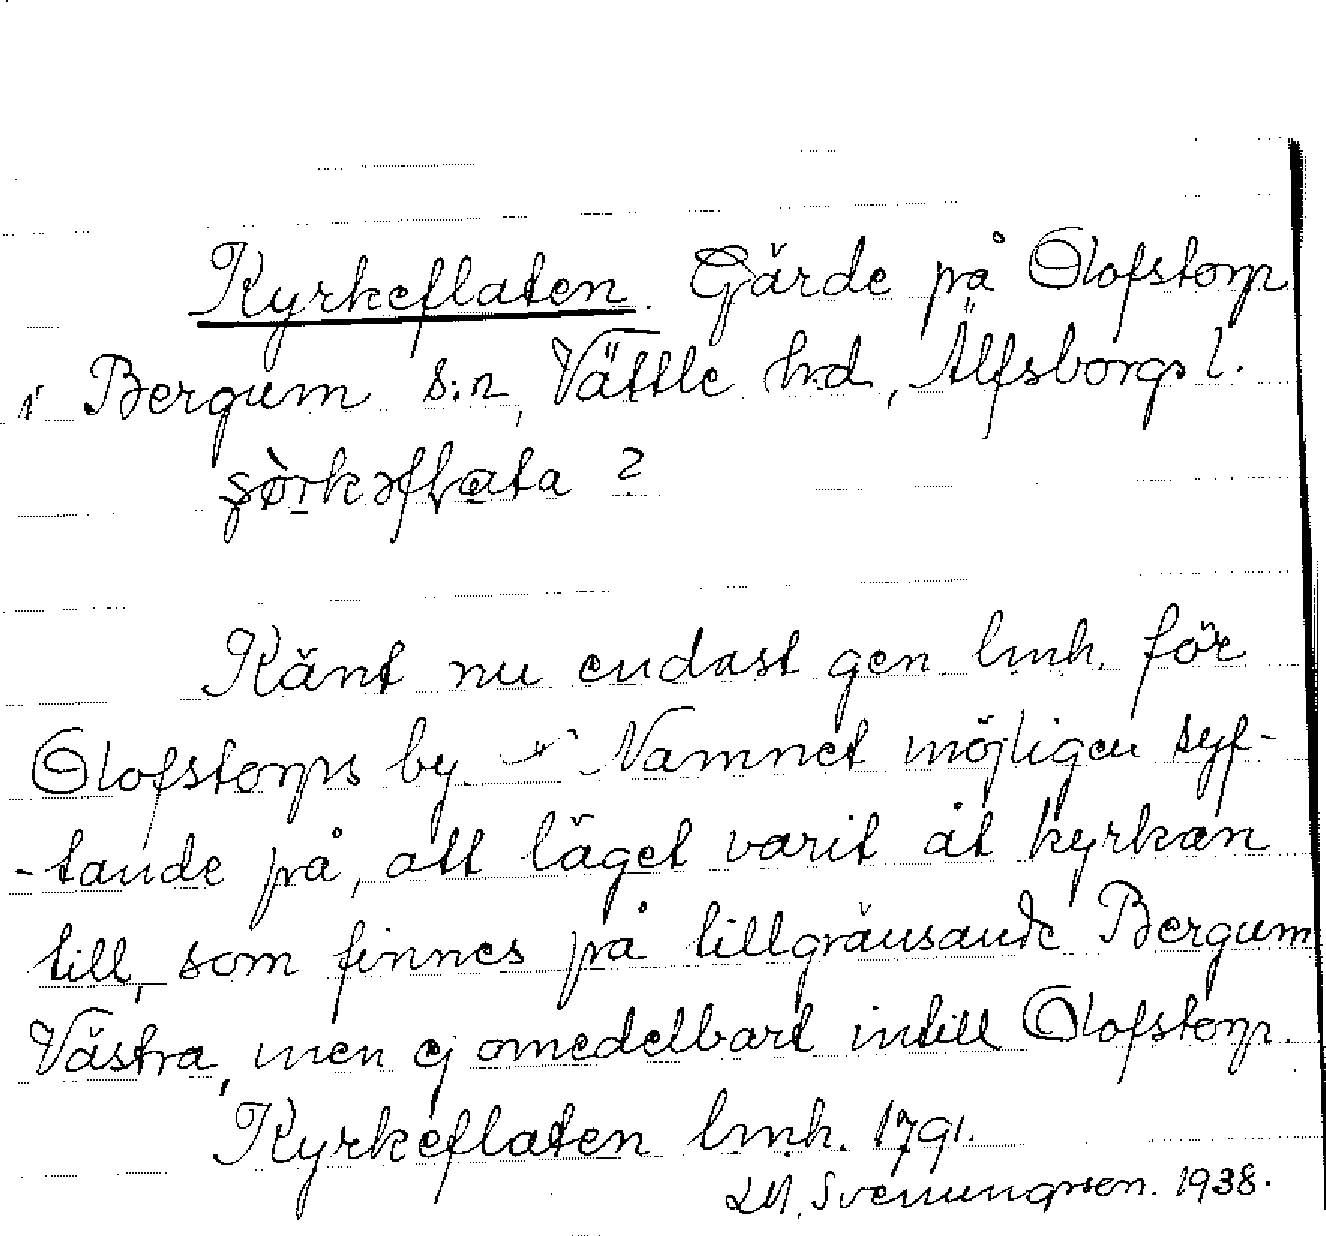 Kyrkeflaten. Gärde på Olofstorp
i Bergum s:n, Vättle hrd, Älfsborgs l.
?
Känt nu endast gen lmh. för
Olofstorps by. Namnet möjligen syf-
-tande på, att läget varit åt kyrkan
till, som finnes på tillgränsande Bergum
Västra, men ej omedelbart intill Olofstorp.
Kyrkeflaten lmh. 1791.
Svenungsson. 1938.